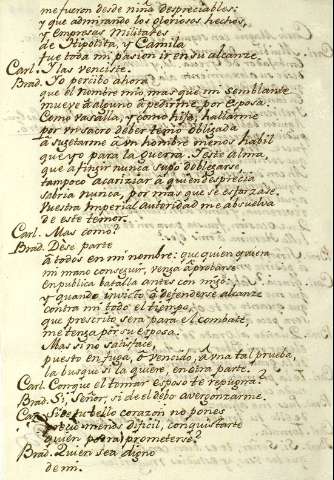 me fueron desde niña despreciables:
y que admirando los gloriosos hechos,
y empresas Militares
de Hipolita, y Camila
fue toda mi pasion ir en su alcanze.
Carl. Y las venciste.
Brad. Yo percibo ahora
que el nombre mio mas que mi semblante
mueve à alguno à pedirme por Esposa.
Como vasalla, y como hija, hallarme
por un sacro deber temo obligada
à sugetarme à un hombre menos habil
que yo para la guerra. Y este alma,
que à fingir nunca supo doblegarse
tampoco acariziar à quien desprecia
sabria nunca, por mas que se esforzase.
Vuestra Imperial autoridad me absuelva
de este temor.
Carl. Mas como?
Brad. Dese parte
à todos en mi nombre: que quien quiera
mi mano conseguir, venga à probarse
en publica batalla antes con migo:
y quando invicto à defenderse alcanze
contra mi todo el tiempo,
que prescrito será para el combate,
me tenga por su esposa.
Mas si no satisface,
puesto en fuga, ò vencido, à una tal prueba,
la busque si la quiere, en otra parte.
Carl. Conque el tomar esposo te repugna?
Brad. Si, Señor, si de el debo avergonzarme.
Carl. Si de tu bello corazon no pones
menos dificil, conquistarte
quien podrá prometerse?
Brad. Quien sea digno
de mi.